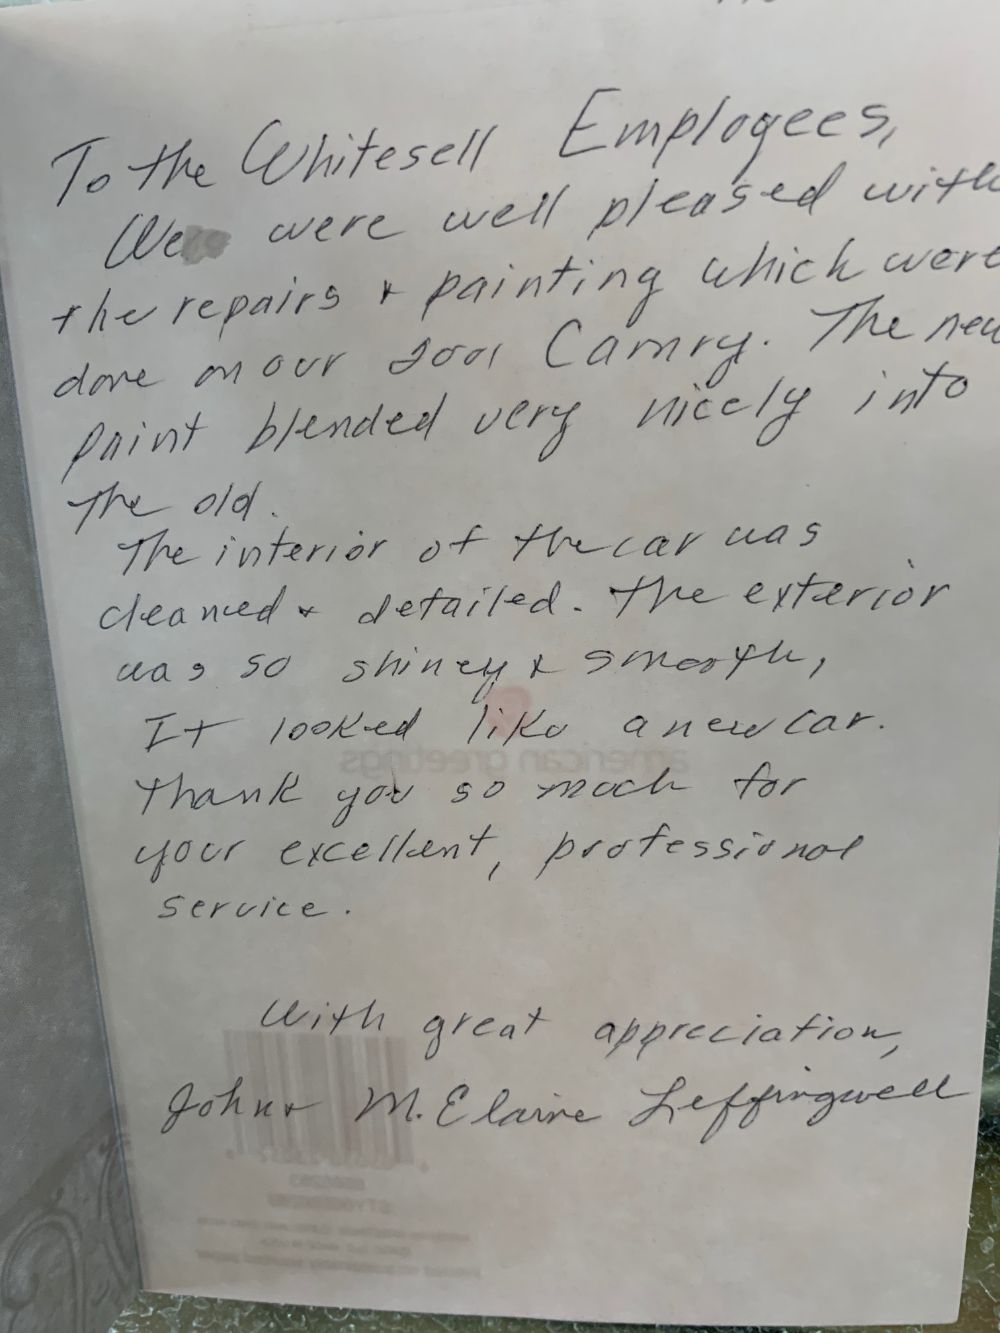 To the Whitesell Employees,
We were well pleased with
the repairs & painting which were
done on our 2001 Camry. The new
paint blended very nicely into
the old.
The interior of the car was
cleaned & detailed. The exterior
was so shiney & smooth,
It looked like a new car.
american greetings
Thank you so much for
your excellent, professional
service.
With great appreciation,
John & M. Elaine Leffingwell